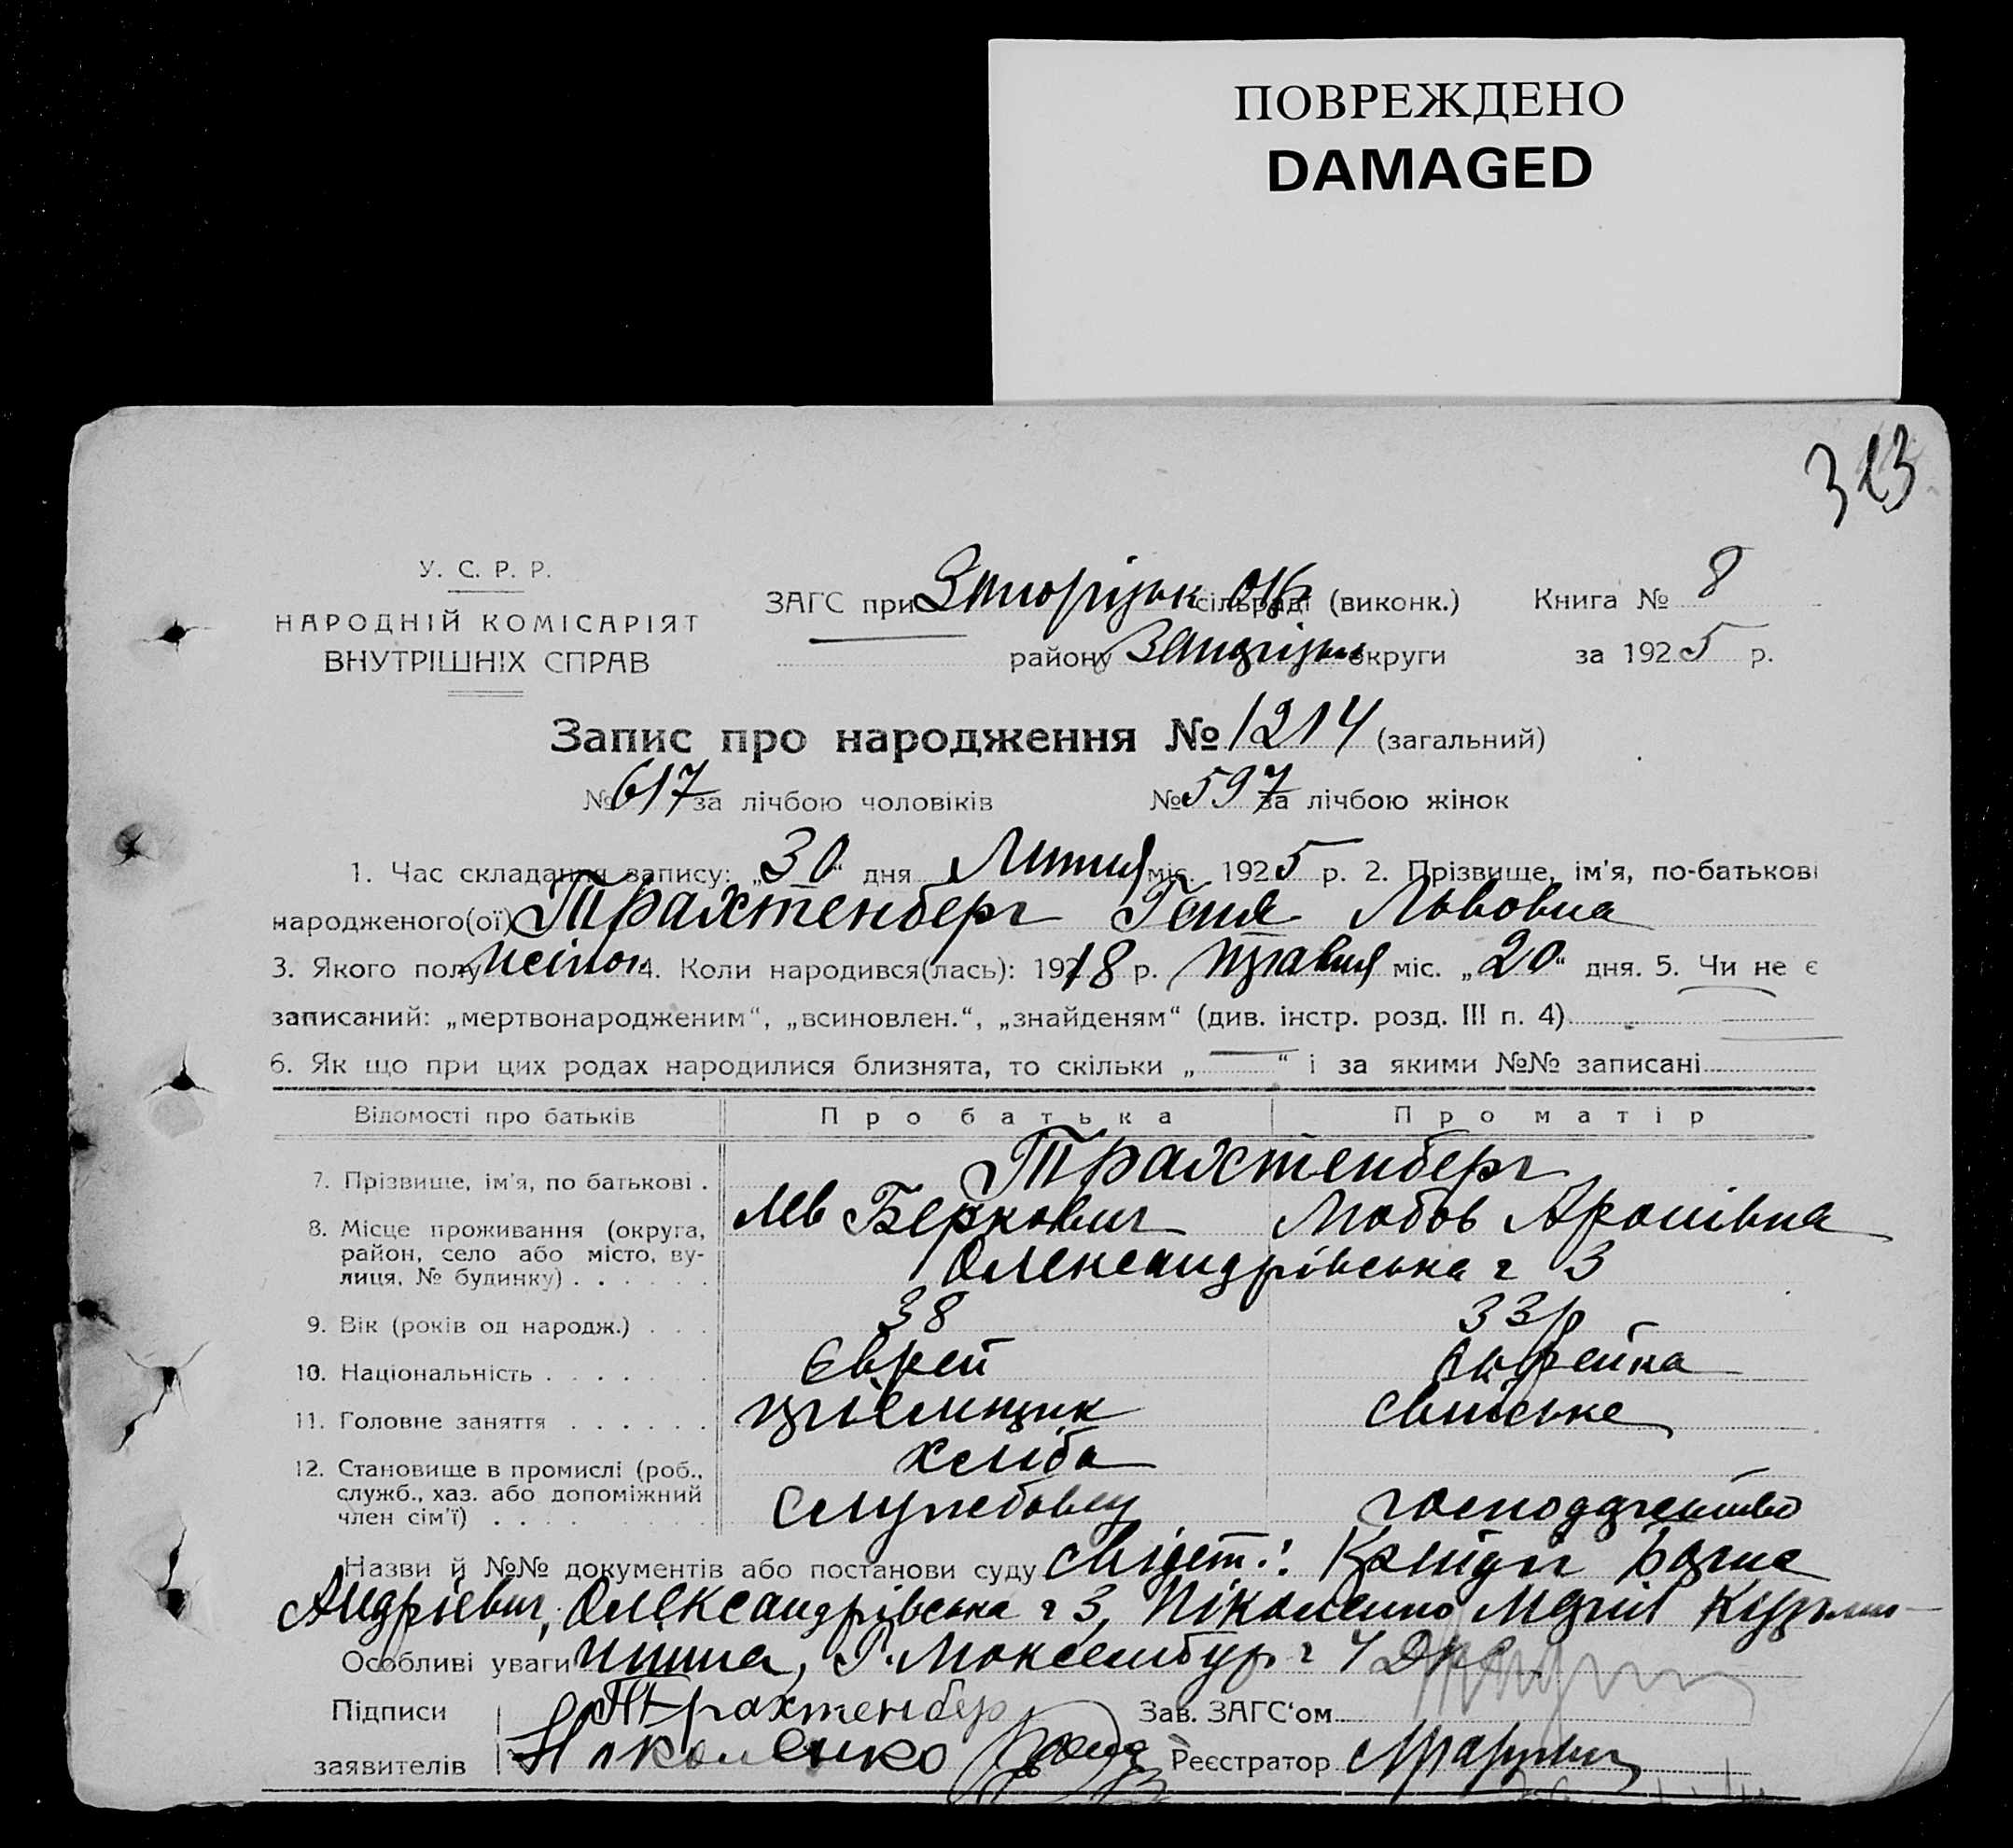 ПОВРЕЖДЕНО
DAMAGED
313
У. С. Р. Р.
НАРОДНІЙ КОМІСАРІЯТ
ВНУТРІШНІХ СПРАВ
ЗАГС при Запоріжськ сільраді (виконк.) Книга № 8
району Запоріжськ округи за 1925 р.
Запис про народження № 1214 (загальний)
№ 617 за лічбою чоловіків № 597 за лічбою жінок
1. Час складання запису: „30“ дня Липня міс. 1925 р. 2. Прізвище, ім'я, по-батькові
народженого(ої) Трахтенберг Геня Львовна
3. Якого полу жіноч. 4. Коли народився(лась): 1918 р. травня міс. „20“ дня. 5. Чи не є
записаний: „мертвонародженим“, „всиновлен.“, „знайденям“ (див. інстр. розд. III п. 4)
6. Як що при цих родах народилися близнята, то скільки „—“ і за якими №№ записані
Відомості про батьків Про батька Про матір
7. Прізвище, ім'я, по батькові . Трахтенберг
Лев Беркович Любов Аронівна
8. Місце проживання (округа,
район, село або місто, ву-
лиця, № будинку) . . . . . . Олександрівська ч 3
9. Вік (років од народж.) . . . 38 33р
10. Національність . . . . . . . Єврей Єврейка
11. Головне заняття . . . . . . приємщик сільське
хліба
12. Становище в промислі (роб.,
служб., хаз. або допоміжний
член сім'ї) . . . . Службовец господарство
Назви й №№ документів або постанови суду свідет.:
Андрієвич, Олександрівська ч 3, Ніколенко Марія Кузьми-
Особливі уваги нішна, ч 4
Підписи Трахтенберг Зав. ЗАГС'ом
заявителів Ніколенко Реєстратор